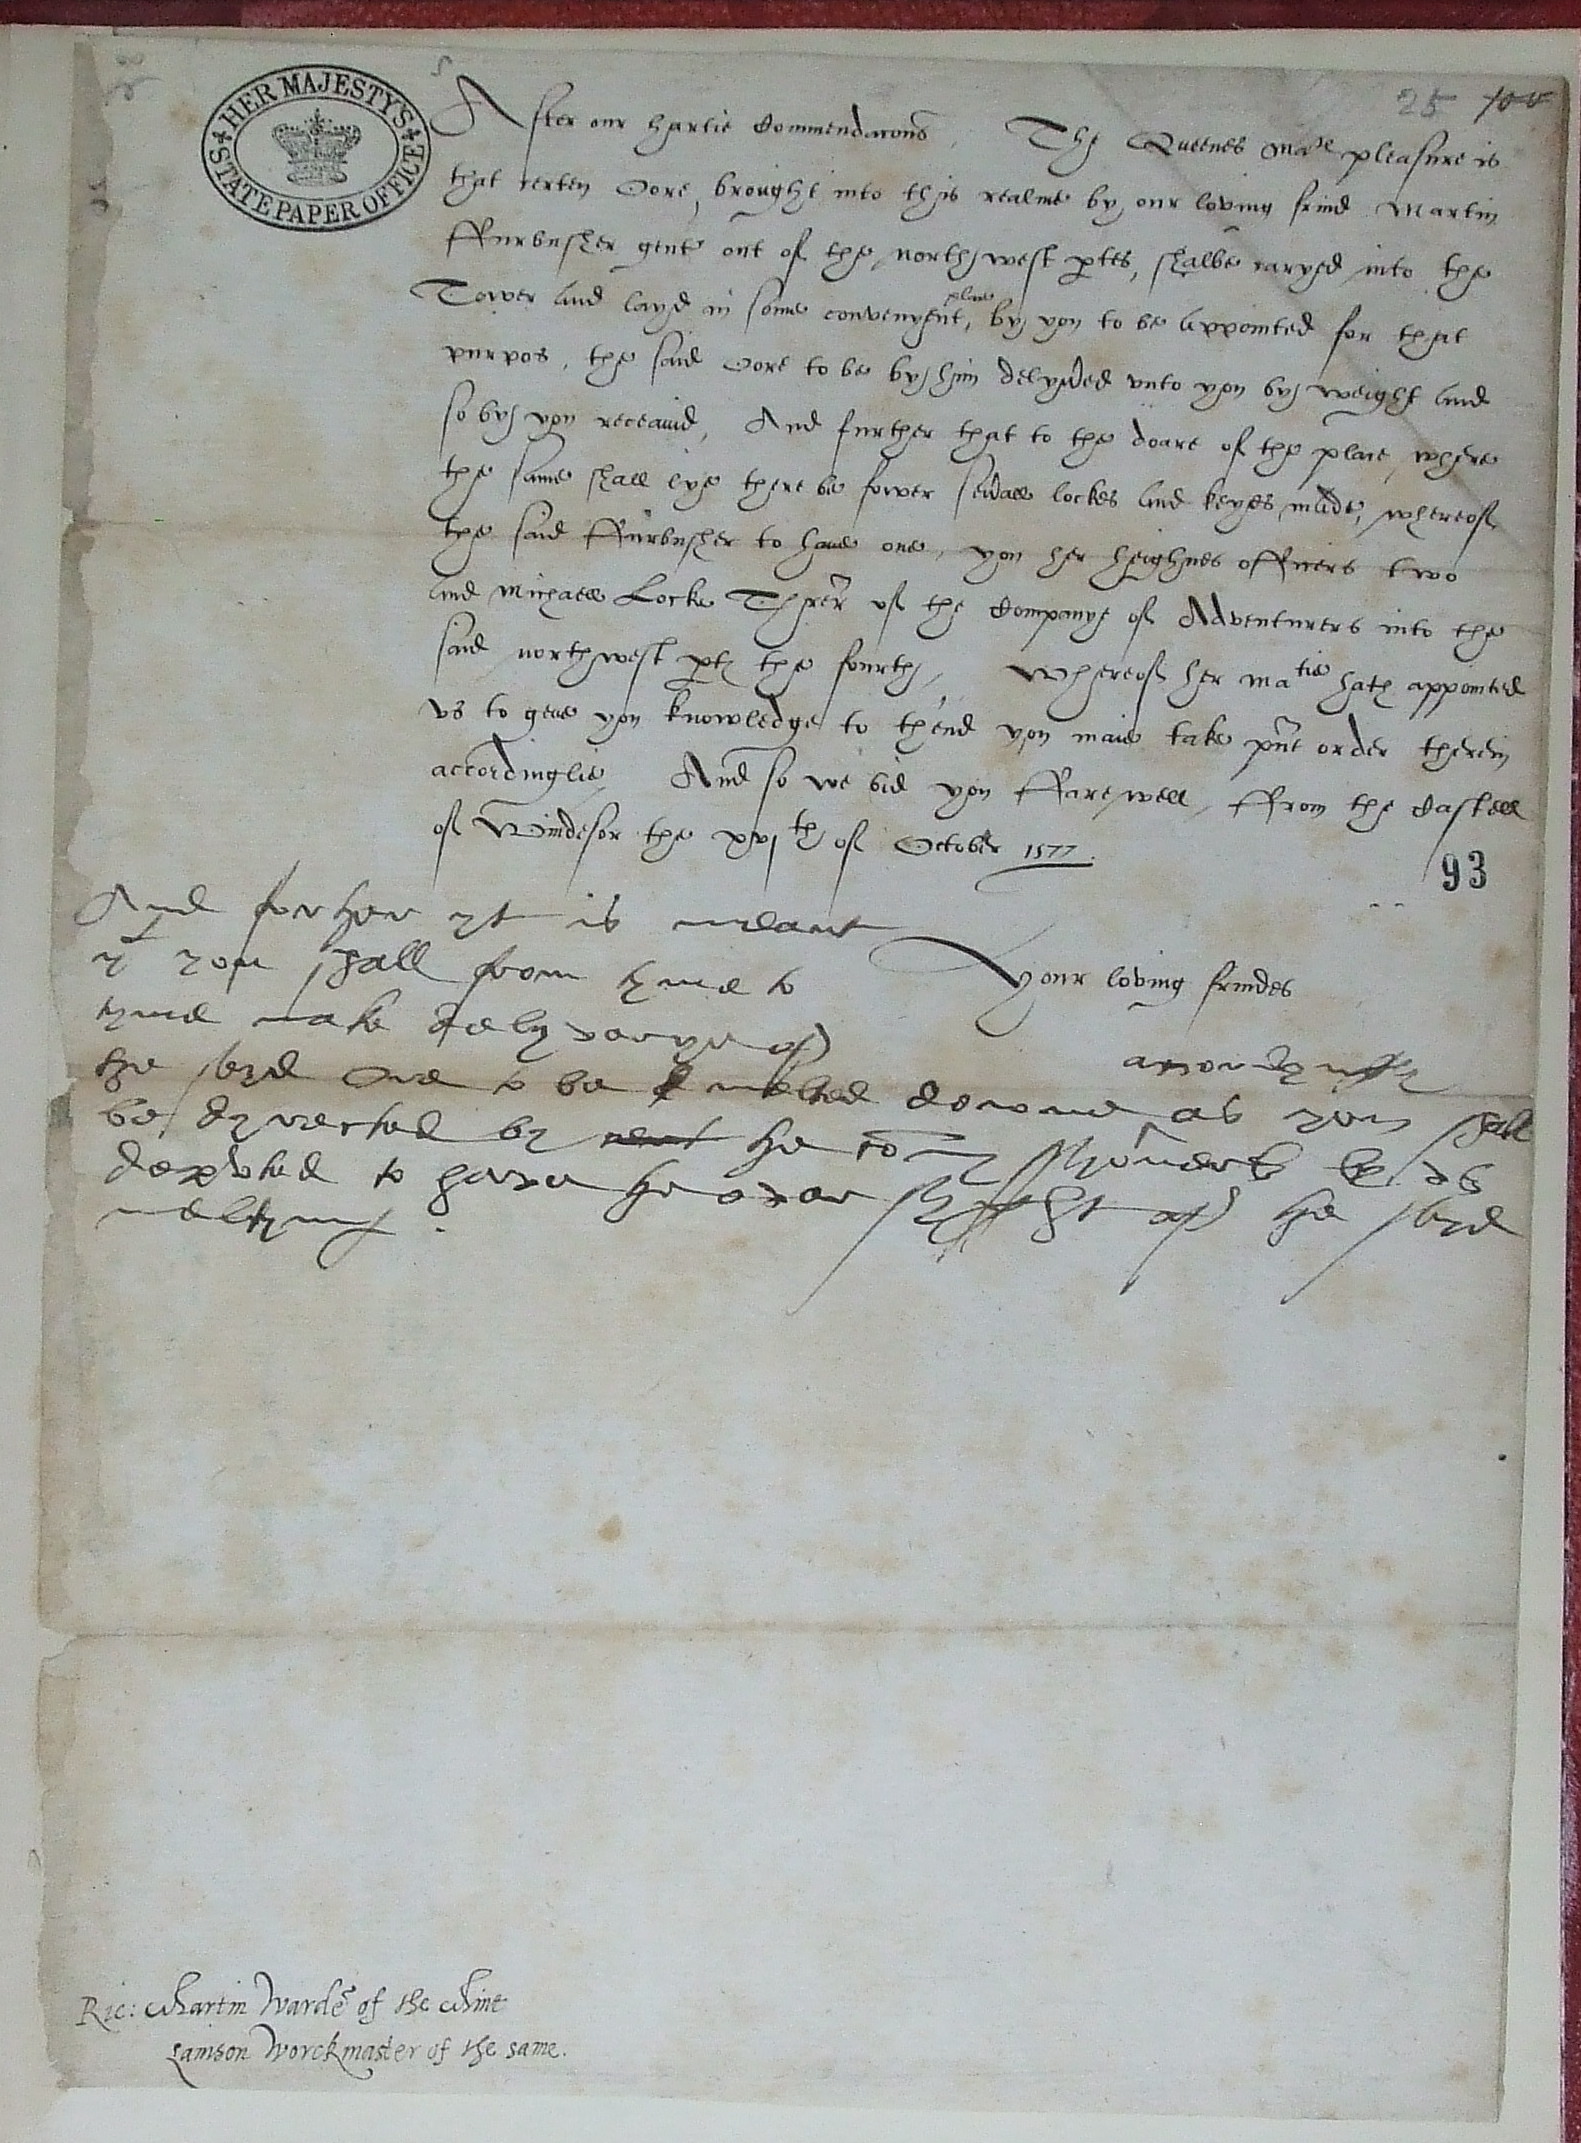 HER MAJESTY'S
STATE PAPER OFFICE
25
After our hartie Commendacons, The Queenes Matie pleasure is
that certen Oore, brought into this realme by our loving frind Martin
ffurbusher gent out of the northwest ptes, shalbe caryed into the
Tower and layd in some convenyent, place by you to be appointed for that
purpos, the said Oore to be by him delyvred vnto you by weight and
so by you receavid, And further that to the doare of the place, where
the same shall lye there be fower severall lockes and keyes made, whereof
the said ffurbusher to have one, you her heighnes officers two
and Michaell Locke Threr of the Companye of Adventurers into the
said northwest ptes the fourth, Whereof her matie hath appointed
vs to geve you knowledge to th'end you maie take pnt order therein
accordinglie, And so we bid you ffarewell, ffrom the Castell
of Windesor the xvjth of October 1577.
93
And forther yt is meant
yt you shall from tyme to
tyme make delyverye of
the seyd Ore to be melted downe as you shall
be dyrected by the comyssyoners by vs
deputed to have the over syght of the seyd
meltyng.
Your loving frindes
accordyngly
Ric: Martin Warden of the Mint
Lamson Worckmaster of the same.